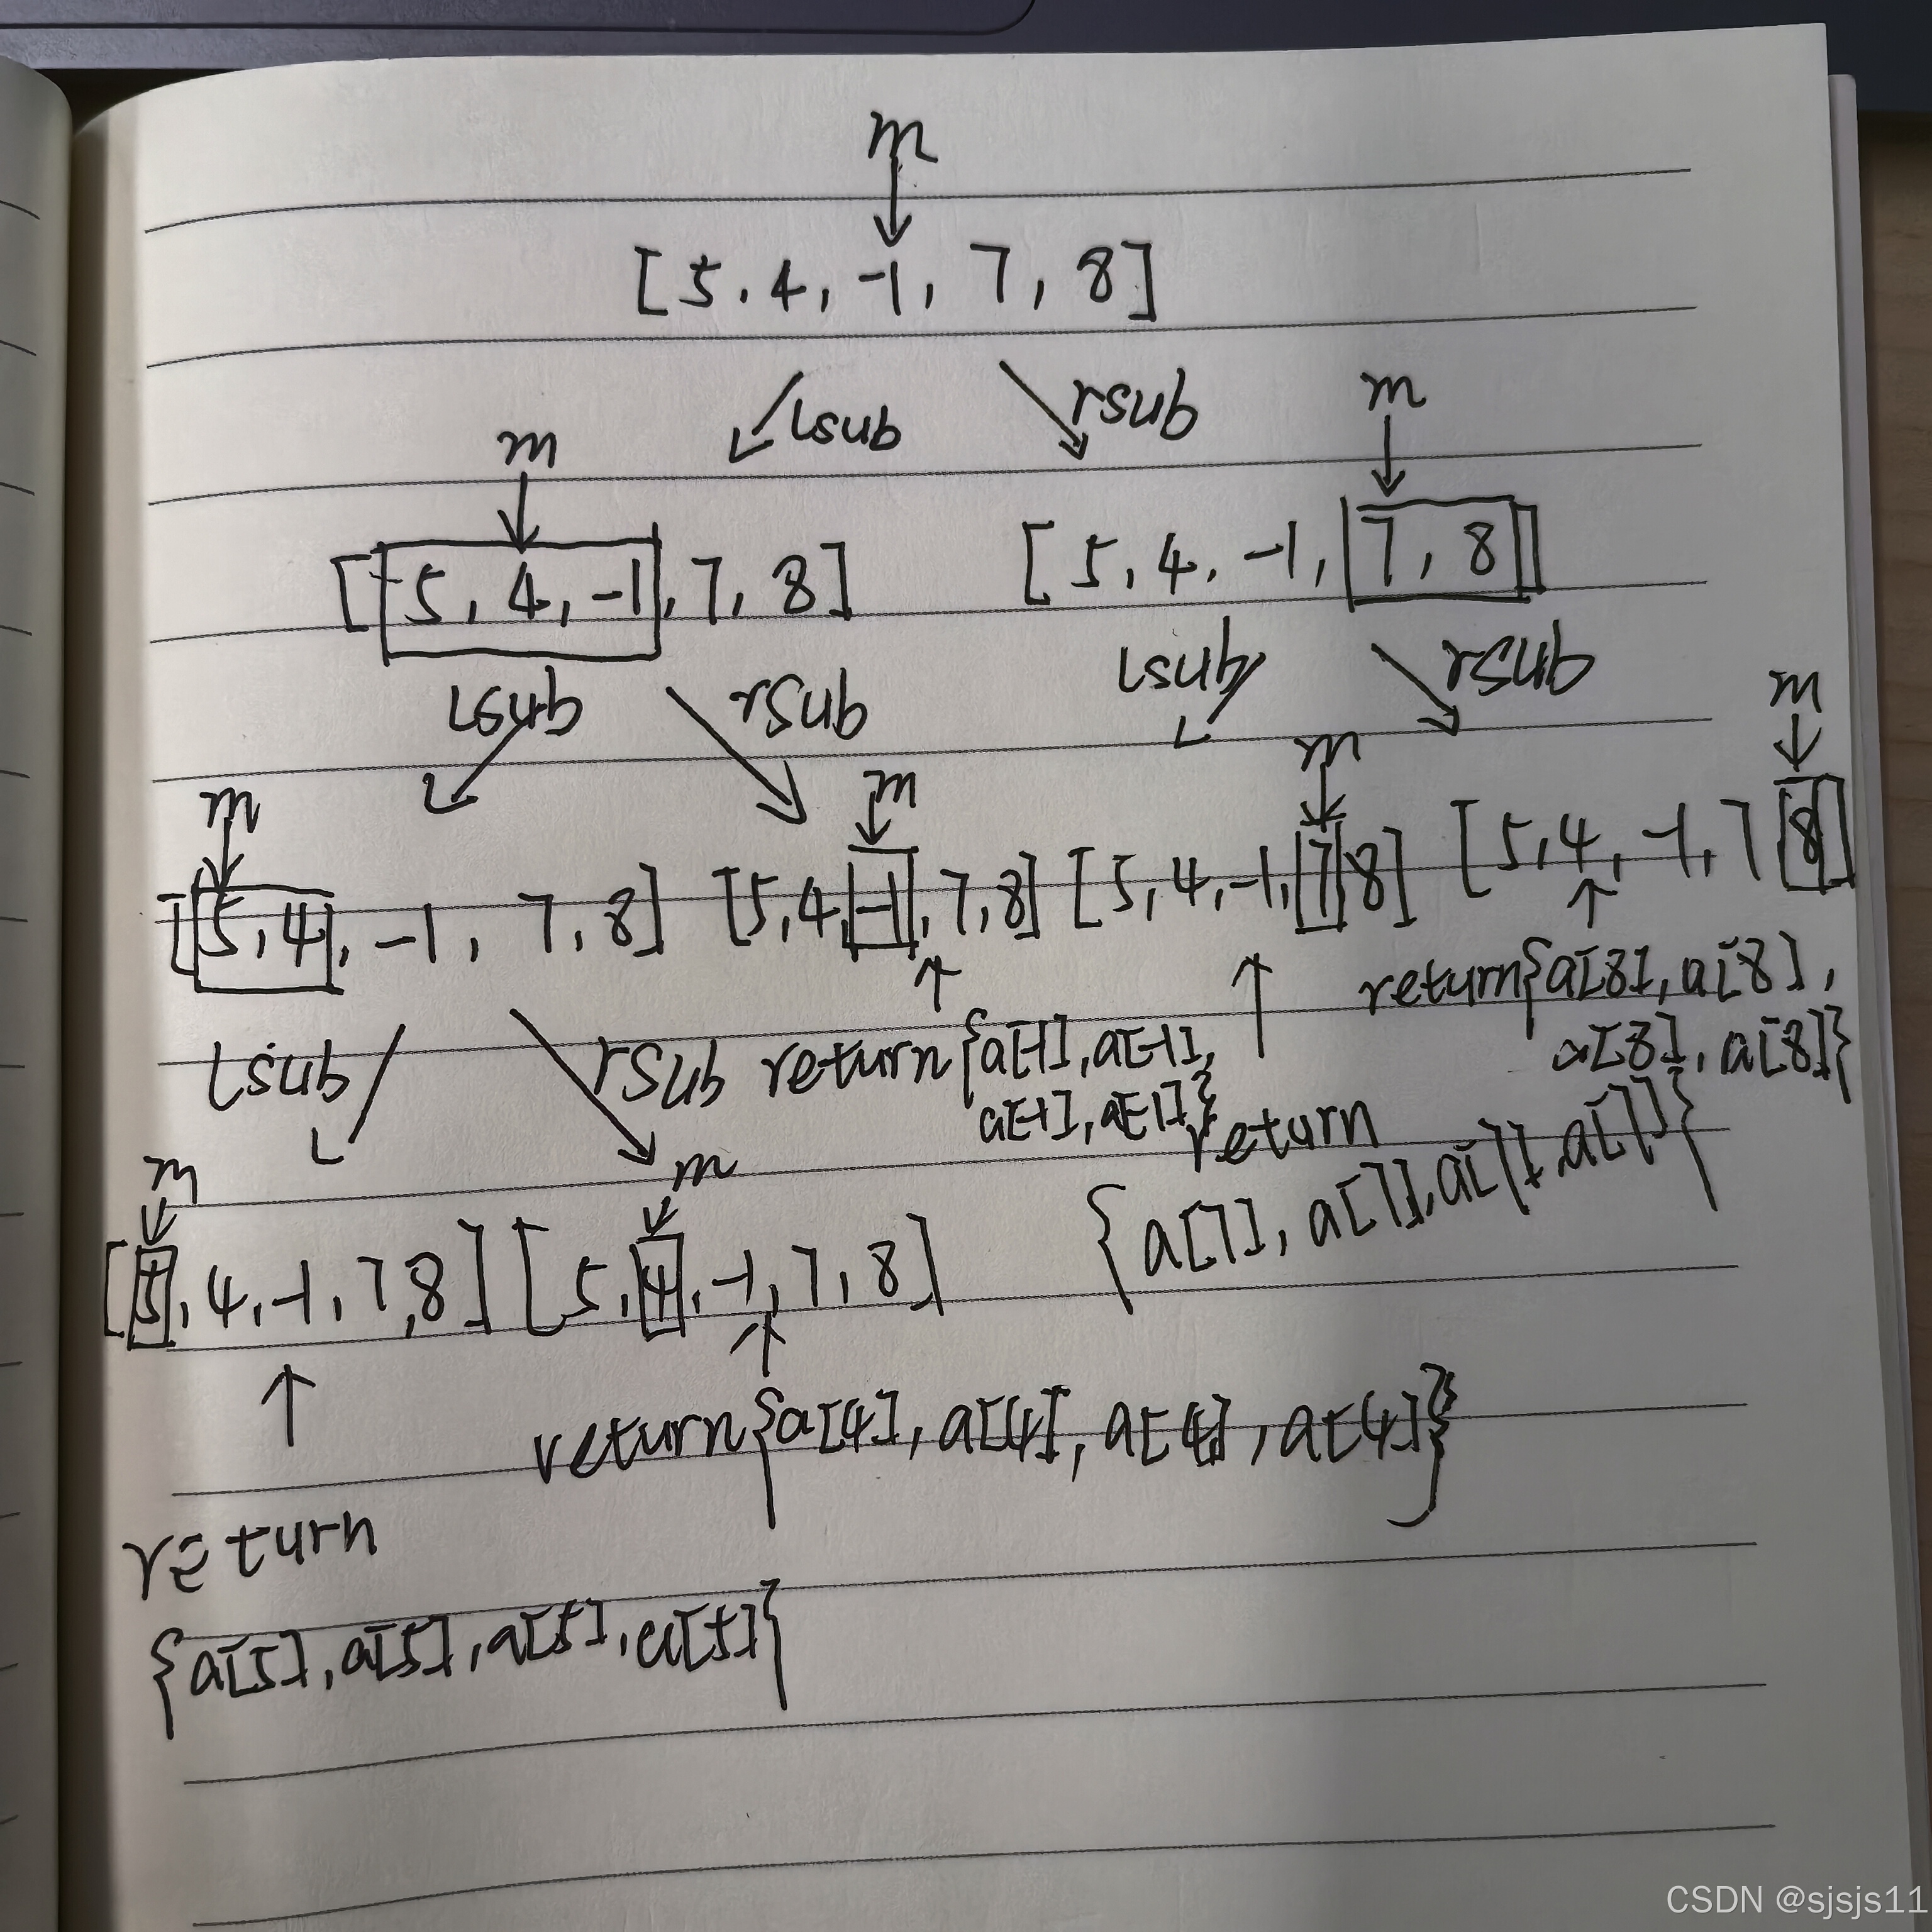 m
[5, 4, -1, 7, 8]
lsub rsub m
m
[5, 4, -1, 7, 8] [5, 4, -1, 7, 8]
lsub rsub lsub rsub m
m m m
[5, 4, -1, 7, 8] [5, 4, -1, 7, 8] [5, 4, -1, 7, 8] [5, 4, -1, 7 8]
return{a[8], a[8],
a[8], a[8]}
lsub rsub return{a[-1], a[-1],
a[-1], a[-1]}
return
{a[7], a[7], a[7], a[7]}
m m
[5, 4, -1, 7, 8] [5, 4, -1, 7, 8]
return{a[4], a[4], a[4], a[4]}
return
{a[5], a[5], a[5], a[5]}
CSDN @sjsjs11